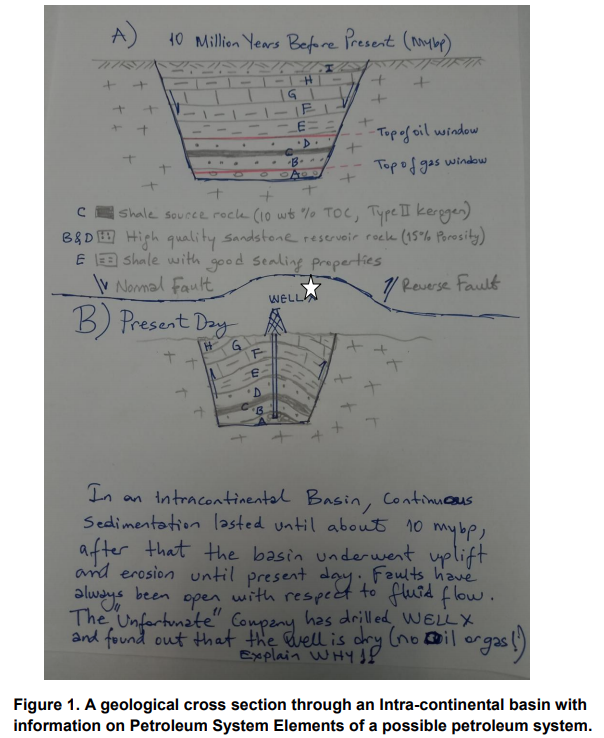 A) 10 Million Years Before Present (Mybp)
I
H
G
F
E
D
Top of oil window
C
B
Top of gas window
A
C Shale source rock (10 wt % TOC, Type II kerogen)
B&D High quality sandstone reservoir rock (15% Porosity)
E Shale with good sealing properties
Normal Fault
Reverse Fault
WELL X
B) Present Day
H G
F
E
D
C B
A
In an Intracontinental Basin, Continuous
Sedimentation lasted until about 10 mybp,
after that the basin underwent uplift
and erosion until present day. Faults have
always been open with respect to fluid flow.
The "Unfortunate" Company has drilled WELL X
and found out that the well is dry (no oil or gas!)
Explain WHY!!
Figure 1. A geological cross section through an Intra-continental basin with
information on Petroleum System Elements of a possible petroleum system.